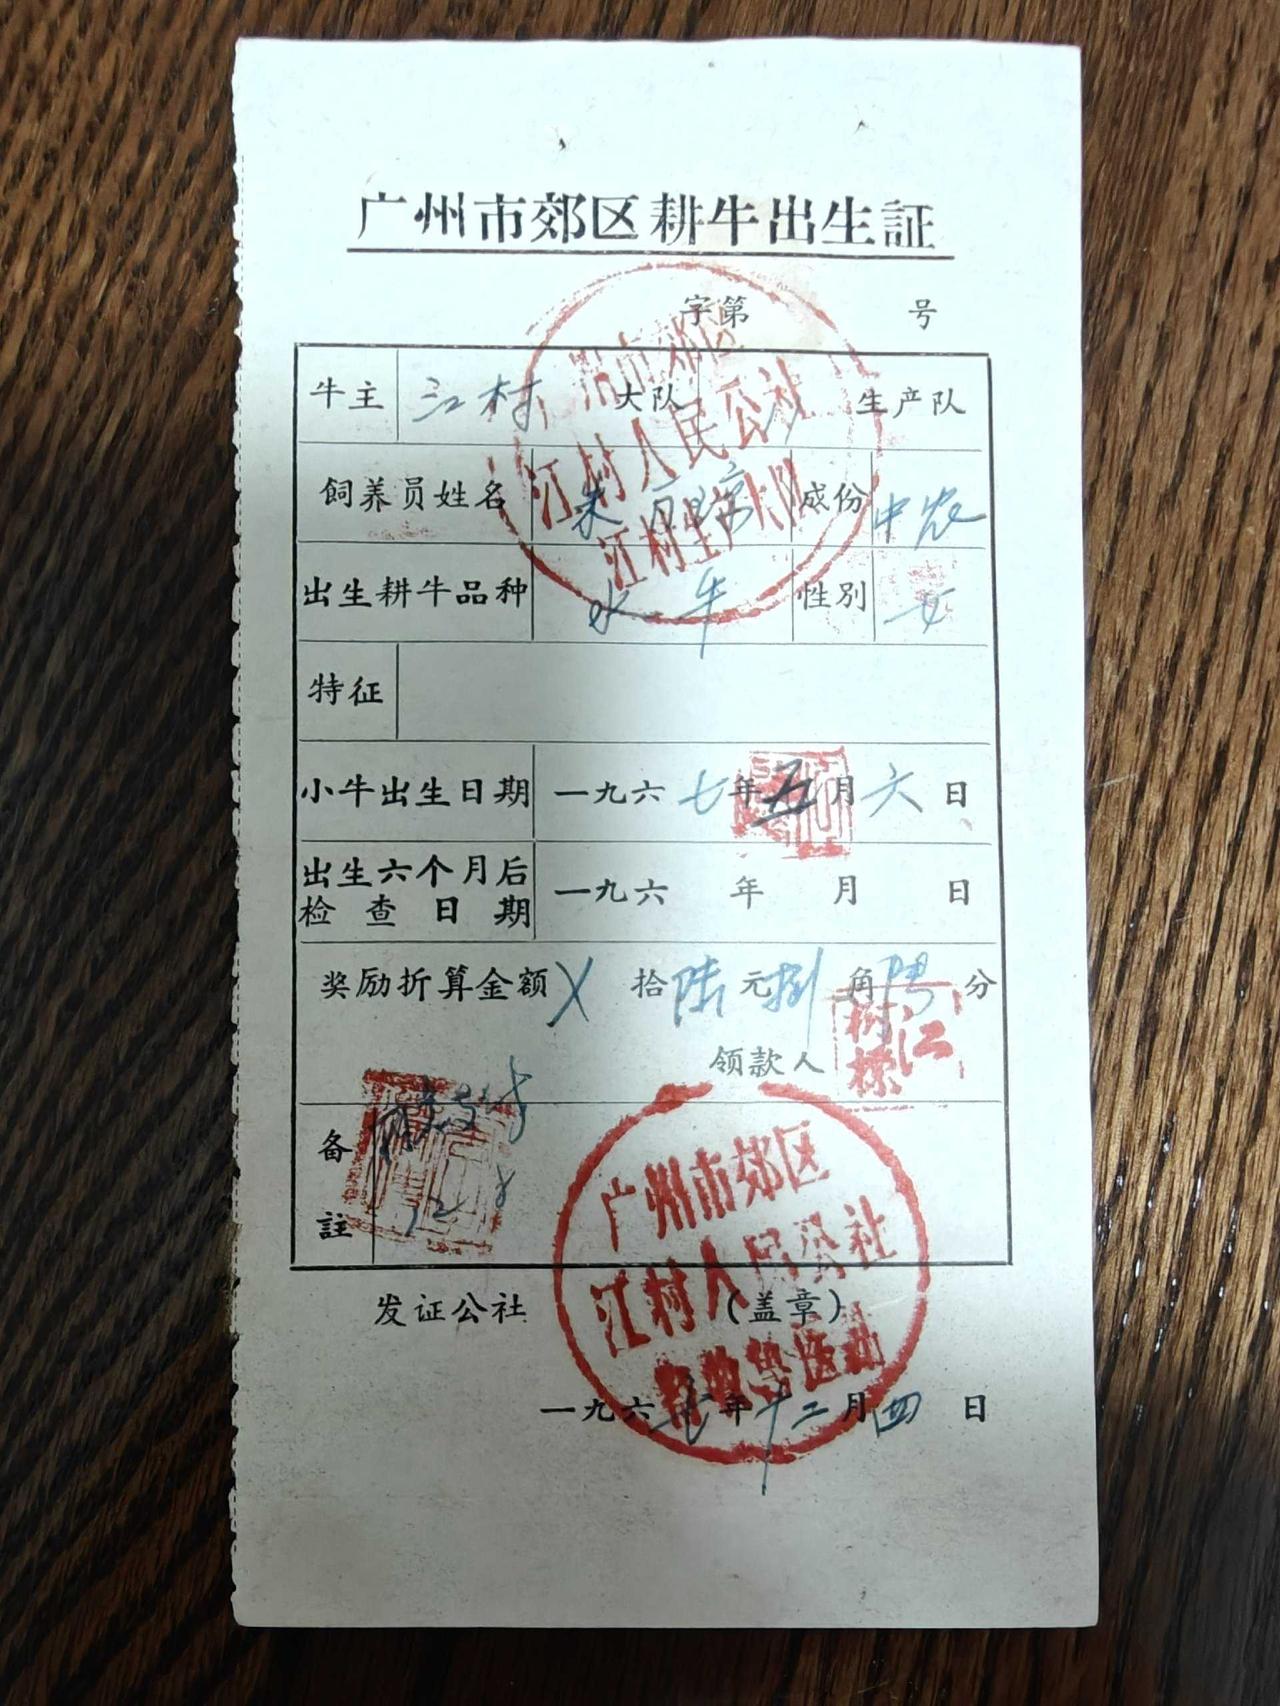 广州市郊区耕牛出生証
字第 号
牛主 江村 大队 生产队
飼养员姓名 朱 成份 中农
出生耕牛品种 水牛 性别 女
特征
小牛出生日期 一九六七年五月六日
出生六个月后检查日期 一九六 年 月 日
奖励折算金额 X 拾陆元捌角 分
领款人
江树标
备註
发证公社 (盖章)
一九六七年十二月四日
广州市郊区
江村人民公社
江村生产大队
广州市郊区
江村人民公社
畜牧兽医站